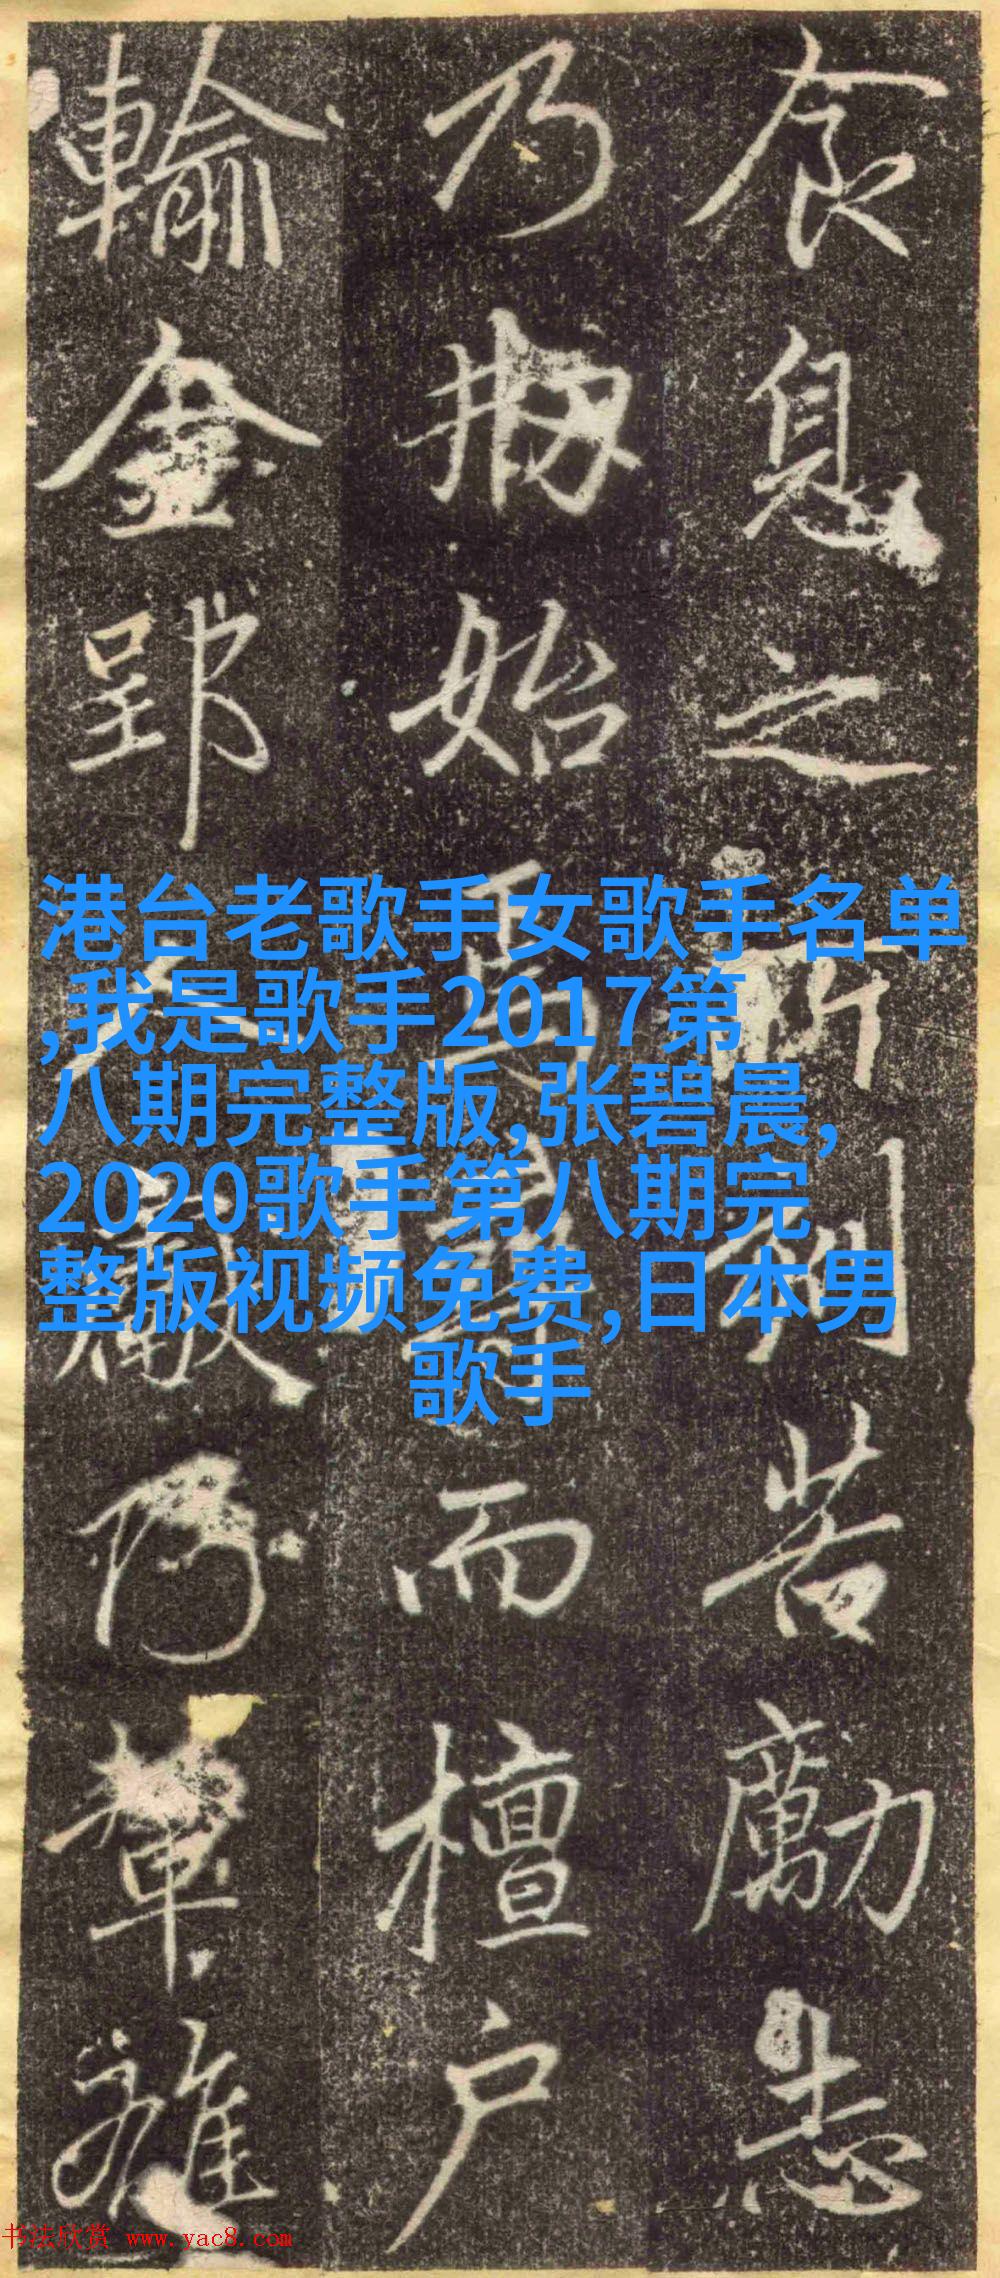 食息之所刻苦勵志
乃搦始焉而檀户
輸金郢輦雜
港台老歌手女歌手名单
,我是歌手2017第
八期完整版,张碧晨,
2020歌手第八期完
整版视频免费,日本男
歌手
书法欣赏 www.yac8.com